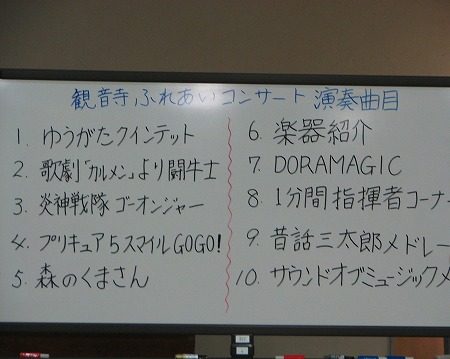 観音寺ふれあいコンサート 演奏曲目
1. ゆうがたクインテット
2. 歌劇「カルメン」より闘牛士
3. 炎神戦隊ゴーオンジャー
4. プリキュア5スマイルGOGO!
5. 森のくまさん
6. 楽器紹介
7. DORAMAGIC
8. 1分間指揮者コーナー
9. 昔話三太郎メドレー
10. サウンドオブミュージックメ